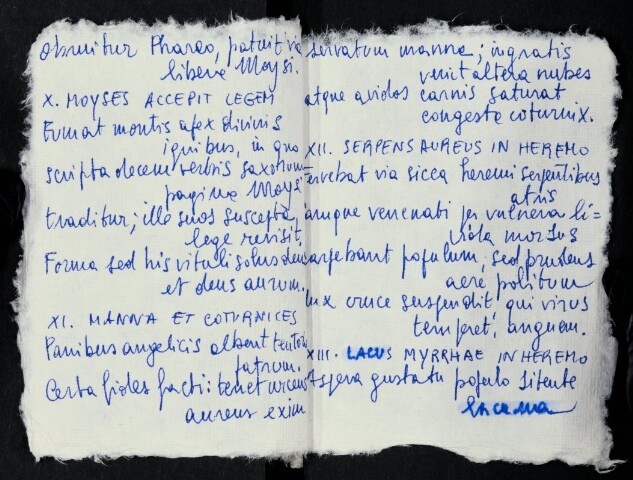 obruitur Pharao, patuit via
libera Moysi.
X. MOYSES ACCEPIT LEGEM
Fumat montis apex divinis
ignibus, in quo
scripta decem verbis saxorum
pagina Moysi
traditur; ille suos suscepta
lege revisit.
Forma sed his vituli solus deus
et deus aurum.
XI. MANNA ET COTURNICES
Panibus angelicis albent tentori
patrum.
Certa fides facti: tenet urceus
aureus exim
servatum manna; ingratis
venit altera nubes
atque avidos carnis saturat
congesta coturnix.
XII. SERPENS AUREUS IN HEREMO
ervebat via sicca heremi serpentibus
atris
iamque venenati per vulnera li=
vida morsus
carpebant populum, sed prudens
aere politum
dux cruce suspendit, qui virus
temperet, anguem.
XIII. LACUS MYRRHAE IN HEREMO
Aspera gustatu populo sitiente